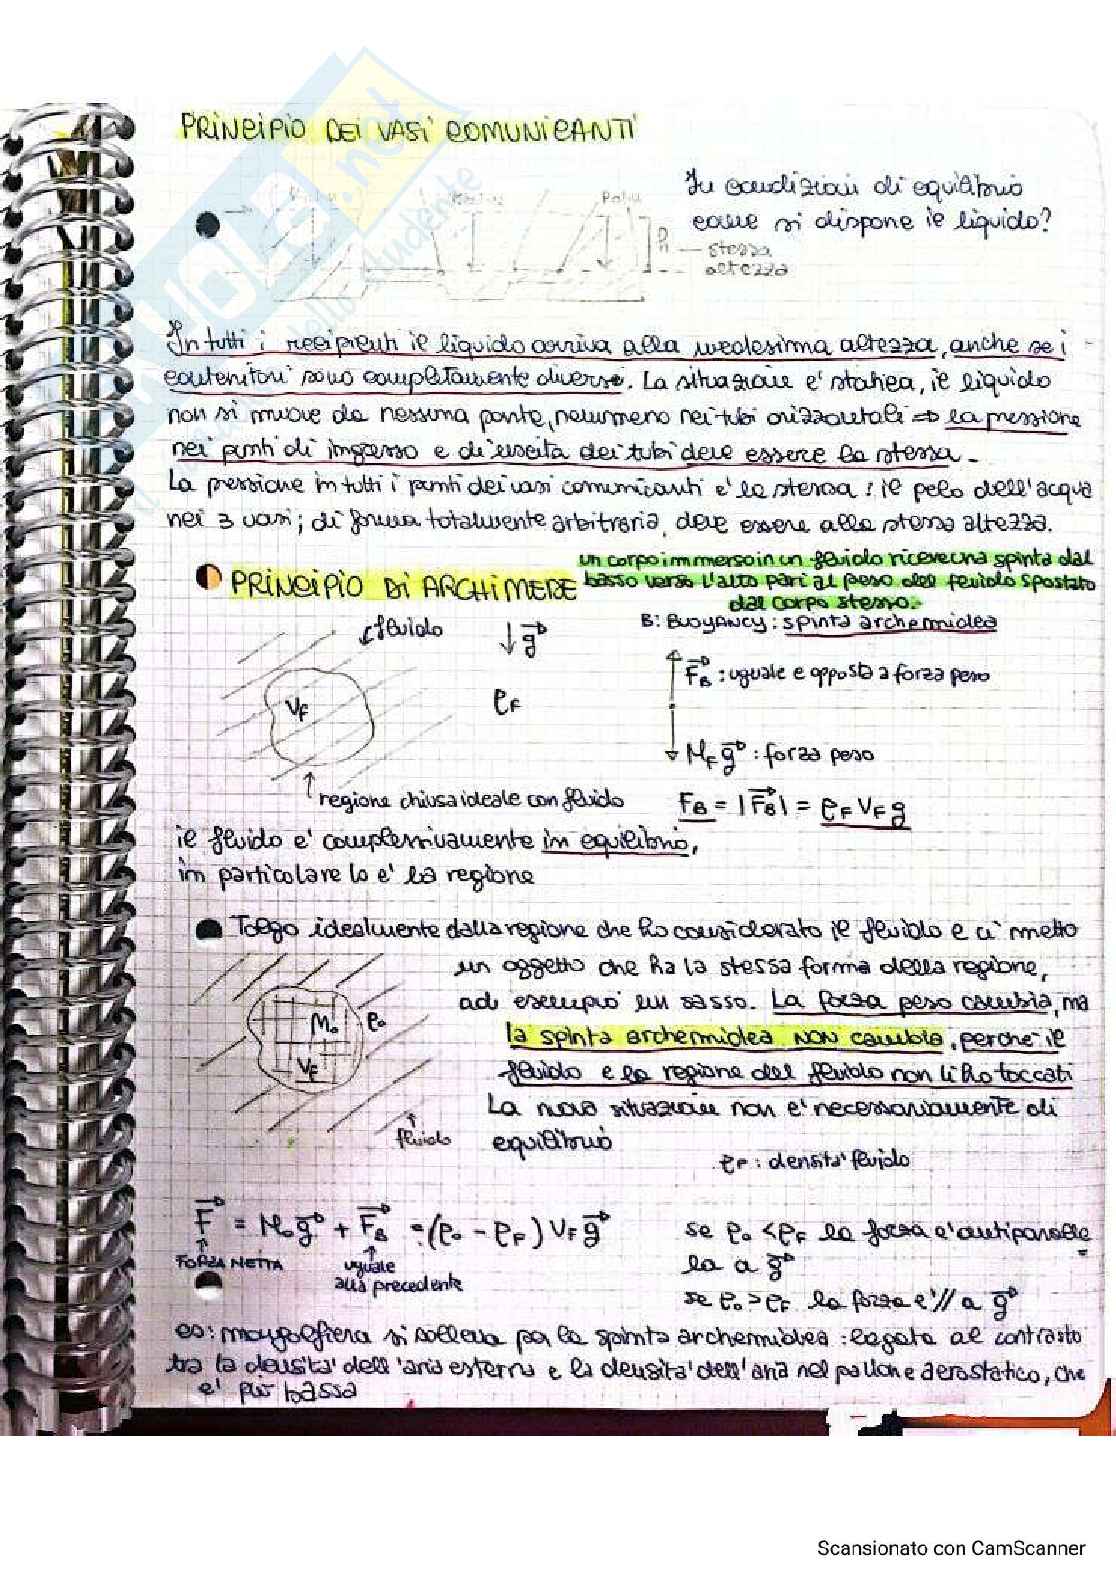 PRINCIPIO DEI VASI COMUNICANTI
In condizioni di equilibrio
come si dispone il liquido?
P₀=Patm
h
stessa
altezza
In tutti i recipienti il liquido arriva alla medesima altezza, anche se i
contenitori sono completamente diversi. La situazione e' statica, il liquido
non si muove da nessuna parte, nemmeno nei tubi orizzontali ⇒ la pressione
nei punti di ingresso e di uscita dei tubi deve essere la stessa.
La pressione in tutti i punti dei vasi comunicanti e' la stessa: il pelo dell'acqua
nei 3 vasi, di forma totalmente arbitraria, deve essere alla stessa altezza.
PRINCIPIO DI ARCHIMEDE
un corpo immerso in un fluido riceve una spinta dal
basso verso l'alto pari al peso del fluido spostato
dal corpo stesso.
B: BUOYANCY: spinta archemidea
fluido
g
V_F
ρ_F
F_B : uguale e opposta a forza peso
M_F g : forza peso
regione chiusa ideale con fluido
F_B = |F_B| = ρ_F V_F g
il fluido e' complessivamente in equilibrio,
in particolare lo e' la regione
Tolgo idealmente dalla regione che ho considerato il fluido e ci metto
un oggetto che ha la stessa forma della regione,
ad esempio un sasso. La forza peso cambia, ma
la spinta archemidea NON cambia, perche' il
fluido e la regione del fluido non li ho toccati
La nuova situazione non e' necessariamente di
equilibrio
M₀ ρ₀
V_F
fluido
ρ_F : densita' fluido
F = M₀ g + F_B = (ρ₀ - ρ_F) V_F g
FORZA NETTA
uguale
alla precedente
se ρ₀ < ρ_F la forza e' antiparalle
la a g
se ρ₀ > ρ_F la forza e' // a g
es: mongolfiera si solleva per la spinta archemidea: legata al contrasto
tra la densita' dell'aria esterna e la densita' dell'aria nel pallone aerostatico, che
e' piu' bassa
Scansionato con CamScanner